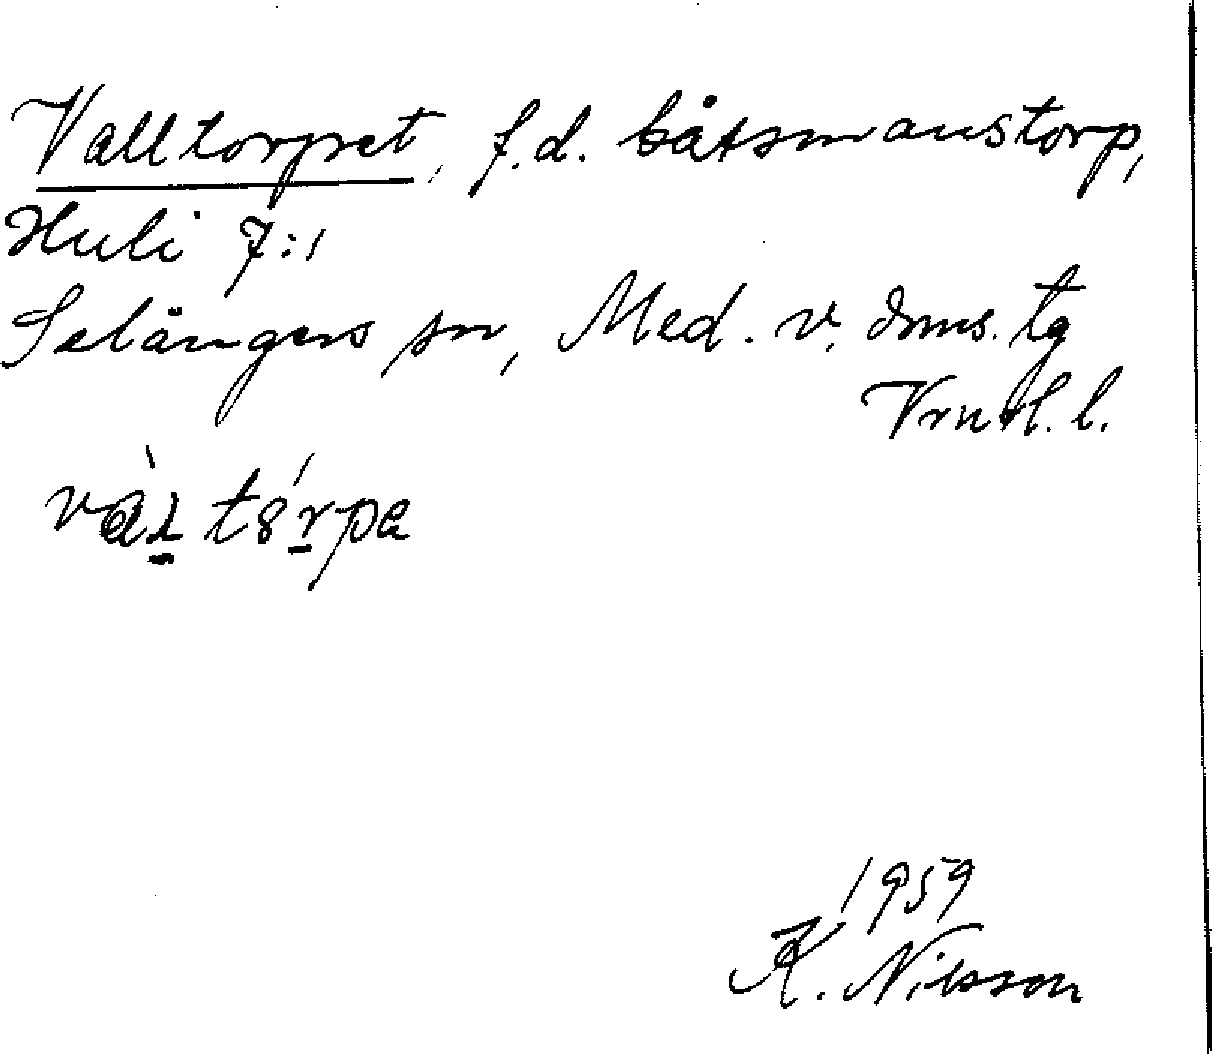 Valltorpet, f.d. båtsmanstorp,
Huli 7:1
Selångers sn, Med. v. doms. tg
Vrnl. l.
1959
K. Nilsson